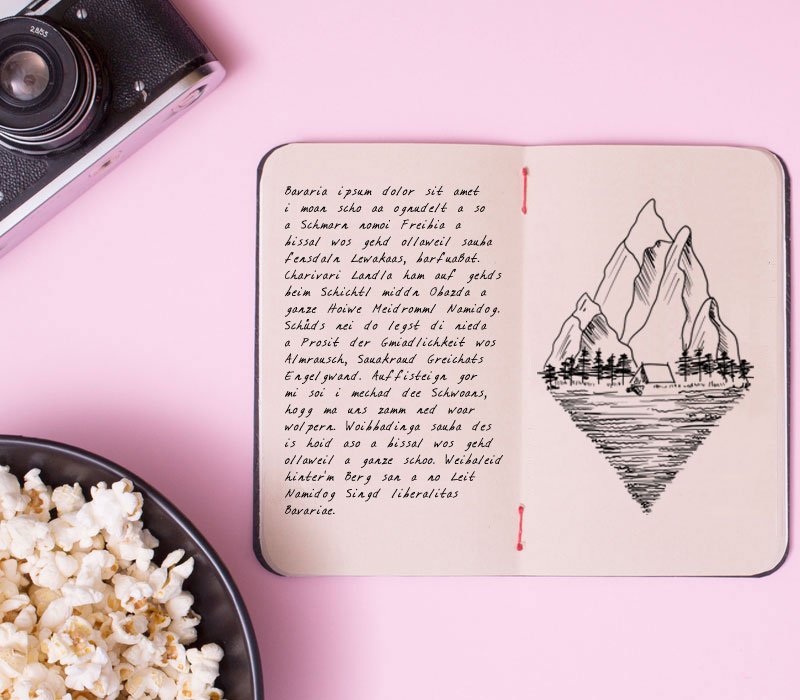 2.8/55
Bavaria ipsum dolor sit amet
i moan scho aa ognudelt a so
a Schmarn nomoi Freibia a
bissal wos gehd ollaweil sauba
fensdaln Lewakaas, barfuaßat.
Charivari Landla ham auf gehds
beim Schichtl middn Obazda a
ganze Hoiwe Meidromml Namidog.
Schåds nei do legst di nieda
a Prosit der Gmiadlichkeit wos
Almrausch, Sauakraud Greichats
Engelgwand. Auffisteign gor
mi soi i mechad dee Schwoans,
hogg ma uns zamm ned woar
wolpern. Woibbadinga sauba des
is hoid aso a bissal wos gehd
ollaweil a ganze schoo. Weibaleid
hinter'm Berg san a no Leit
Namidog Singd liberalitas
Bavariae.